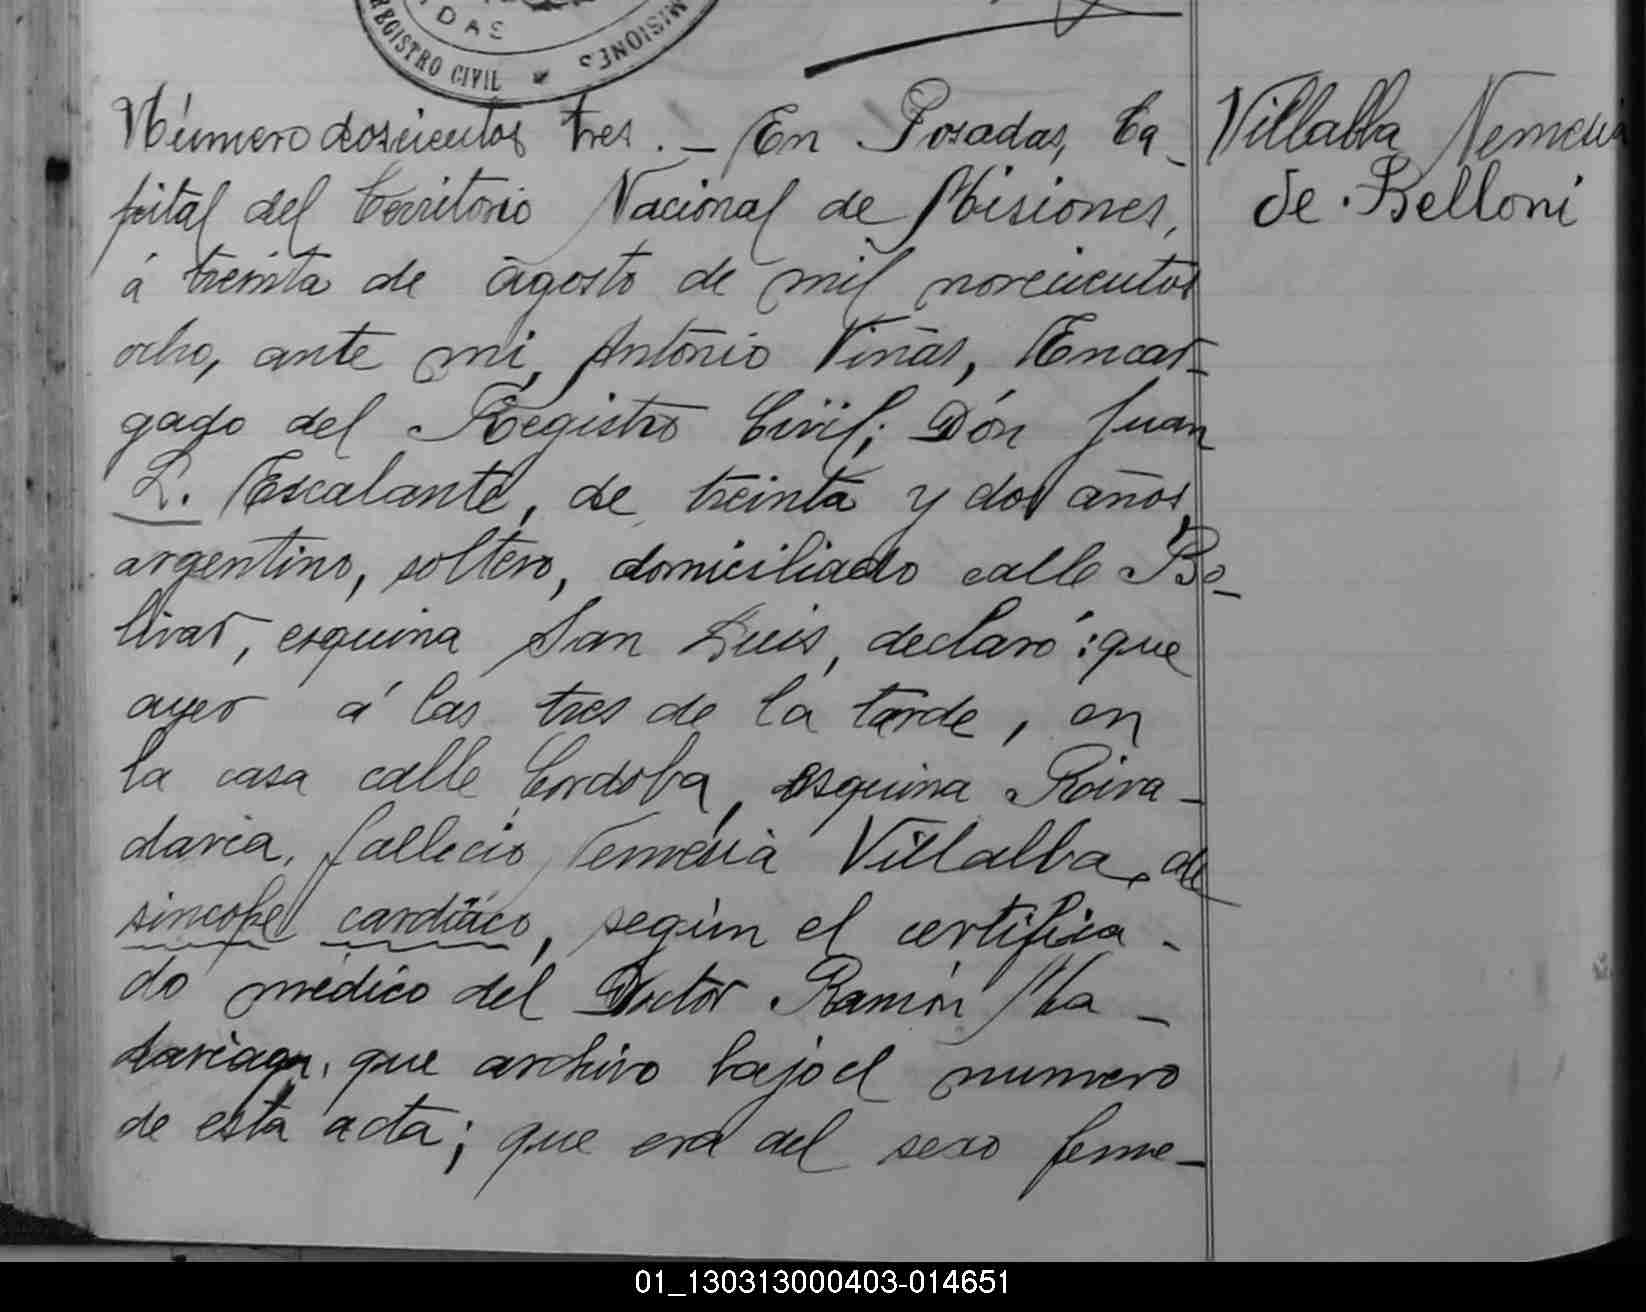 REGISTRO CIVIL * MISIONES
DAS
Número doscientos tres. _ En Posadas, Ca_
pital del Territorio Nacional de Misiones,
á treinta de agosto de mil novecientos
ocho, ante mi, Antonio Viñas, Encar_
gado del Registro Civil; Dón Juan
L. Escalante, de treinta y dos años,
argentino, soltero, domiciliado calle Bo_
livar, esquina San Luis, declaró: que
ayer á las tres de la tarde, en
la casa calle Cordoba, esquina Riva_
davia, falleció Nemesia Villalba, de
sincope cardíaco, según el certifica_
do médico del Doctor Ramón Ma_
dariaga, que archivo bajo el numero
de esta acta; que era del sexo feme_
Villalba Nemesia
de Belloni
01_130313000403-014651